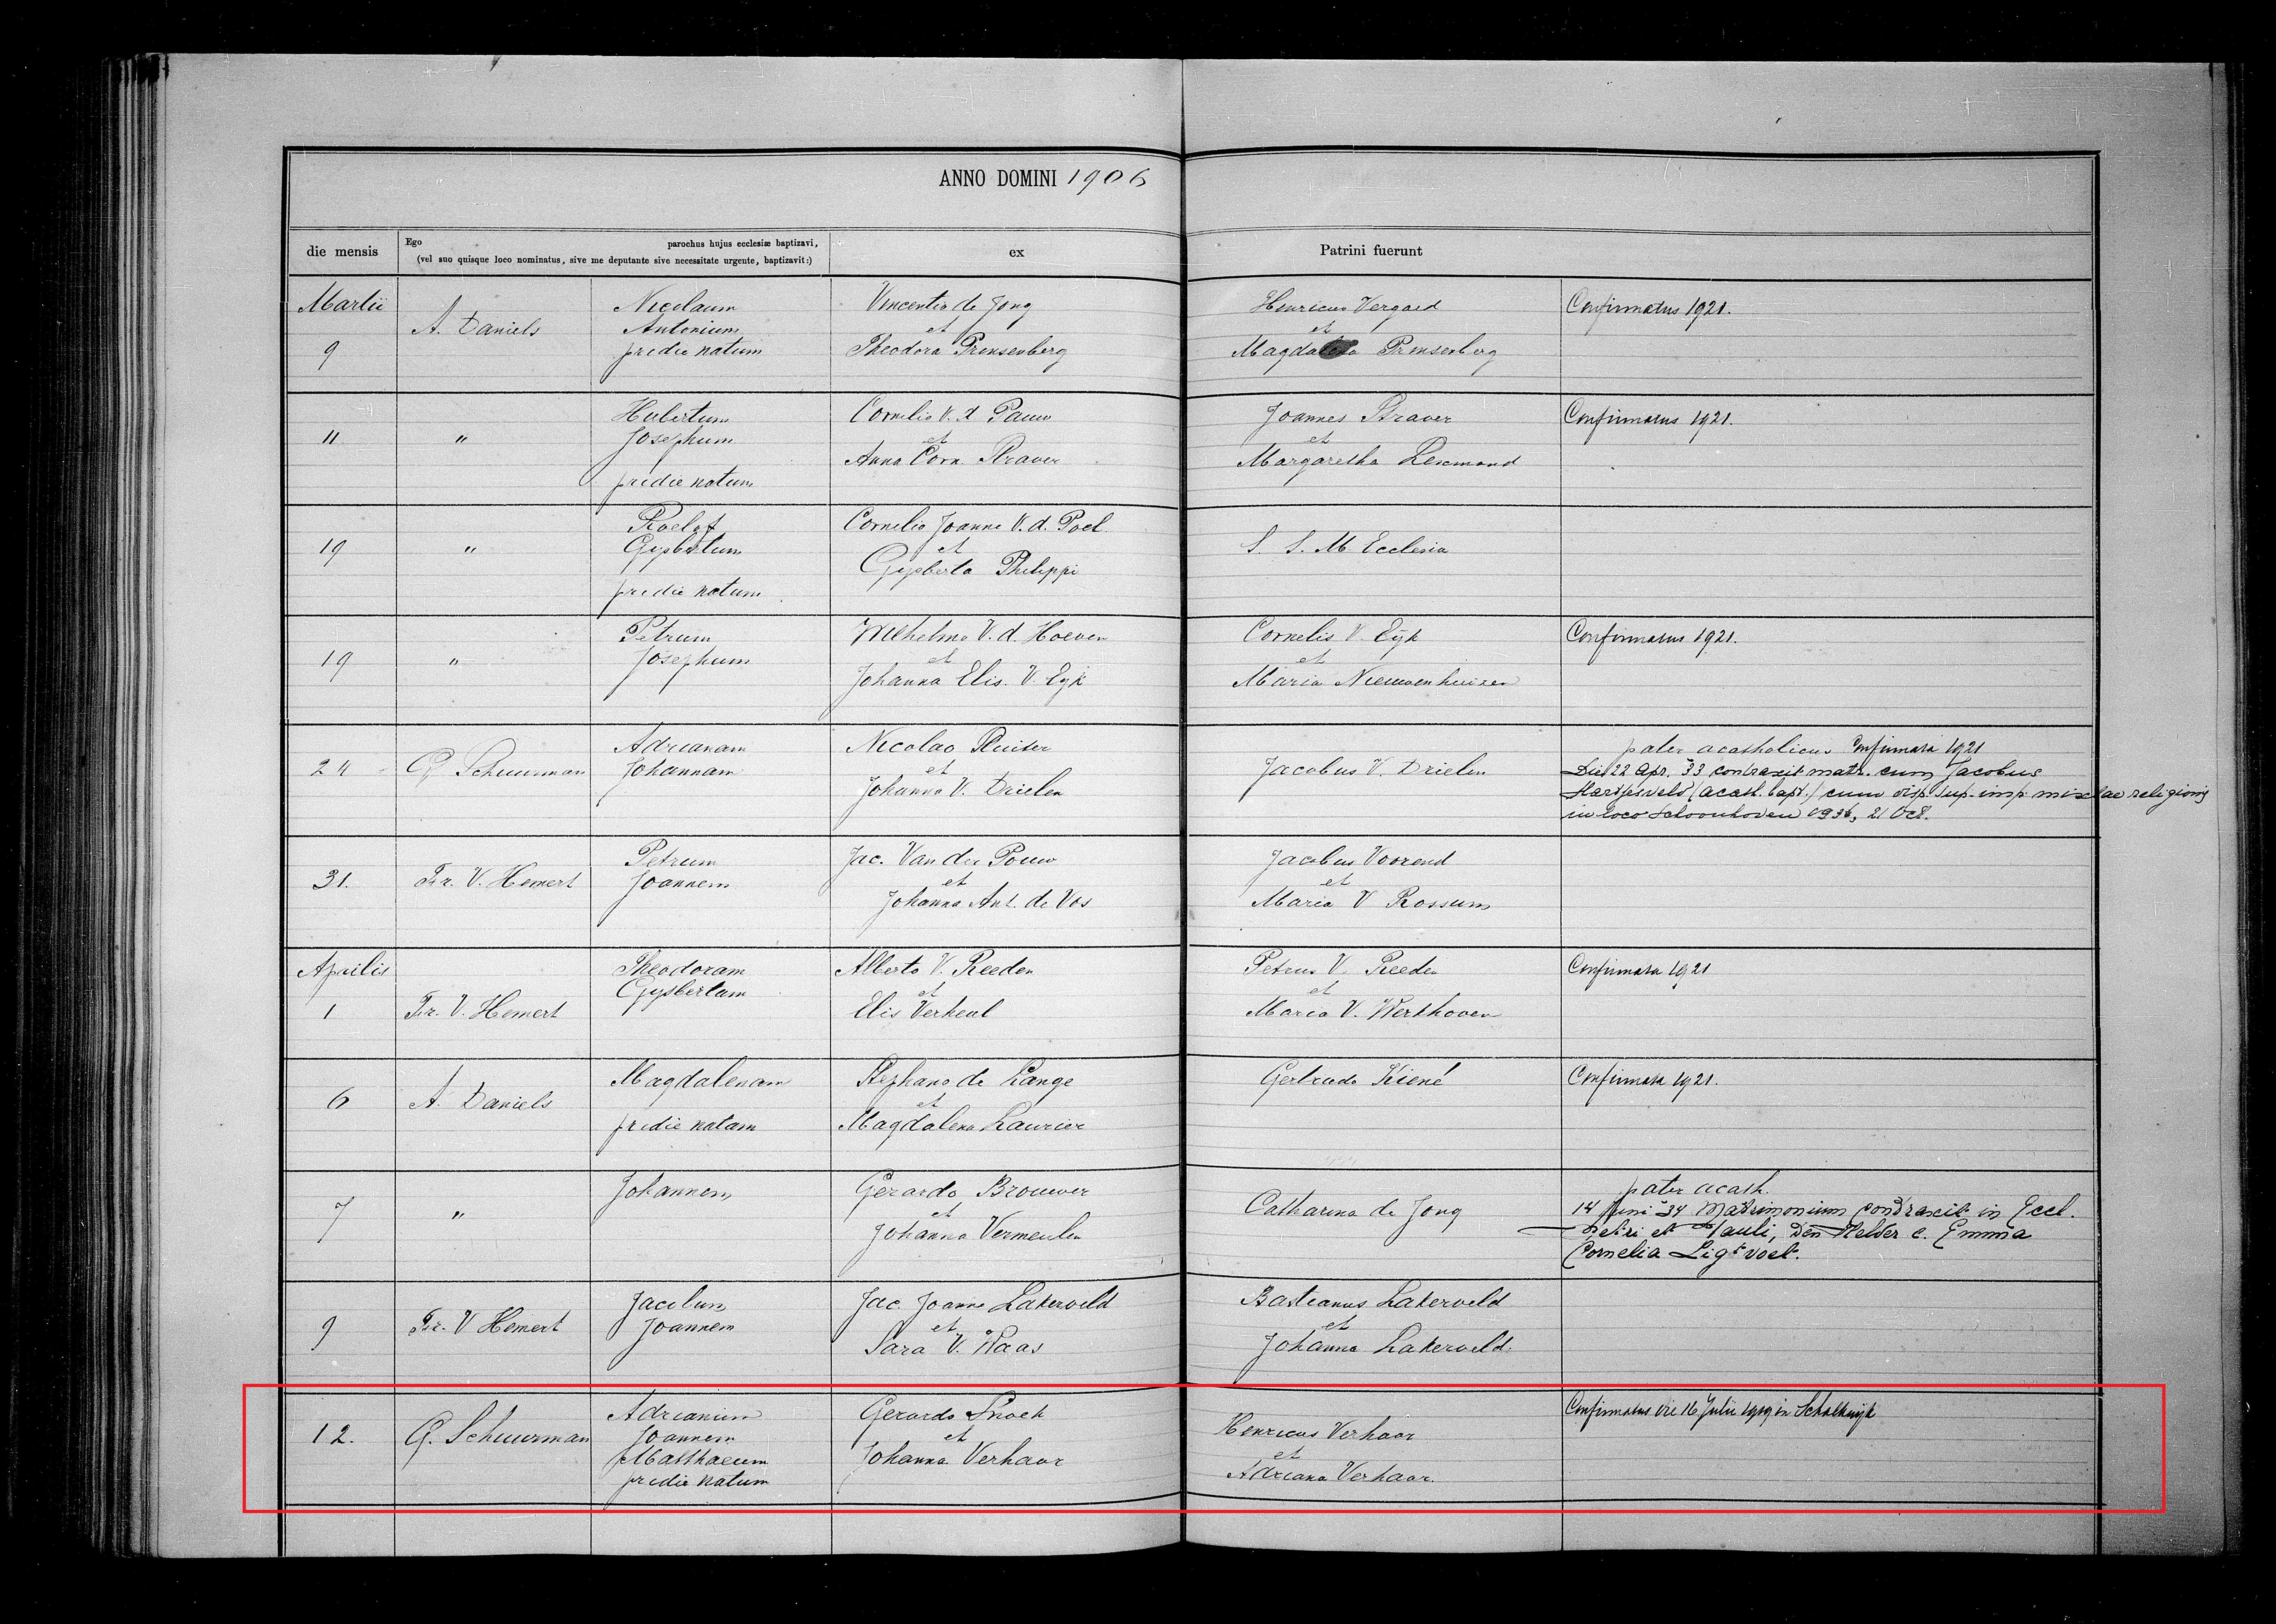 ANNO DOMINI 1906
die mensis
Ego parochus hujus ecclesiæ baptizavi,
(vel suo quisque loco nominatus, sive me deputante sive necessitate urgente, baptizavit:)
ex
Patrini fuerunt
Martii
9
A. Daniels
Nicolaum
Antonium
pridie natum
Vincentio de Jong
et
Theodora Prinsenberg
Henricus Vergaed
et
Magdalena Prinsenberg
Confirmatus 1921.
11
"
Hubertum
Josephum
pridie natum
Cornelio V. d. Pauw
et
Anna Corn. Straver
Joannes Straver
et
Margaretha Lexmond
Confirmatus 1921.
19
"
Roelof
Gysbertum
pridie natum
Cornelio Joanne V. d. Poel
et
Gysberta Philippi
S. S. M. Ecclesia
19
"
Petrum
Josephum
Wilhelmo V. d. Hoeven
et
Johanna Elis. V. Eyk
Cornelis V. Eyk
et
Maria Nieuwenhuizen
Confirmatus 1921.
24
G. Schuurman
Adrianam
Johannam
Nicolao Ruiter
et
Johanna V. Drielen
Jacobus V. Drielen
pater acatholicus Confirmata 1921
Die 22 Apr. '33 contraxit matr. cum Jacobus
Hardjesveld (acath. bapt.) cum disp. sup. imp. mixtae religionis
in loco Schoonhoven 1936, 21 Oct.
31.
Fr. V. Hemert
Petrum
Joannem
Jac. Van der Pouw
et
Johanna Ant. de Vos
Jacobus Voorend
et
Maria V Rossum
Aprilis
1
Fr. V. Hemert
Theodoram
Gysbertam
Alberto V. Reeden
et
Elis Verheul
Petrus V. Reeden
et
Maria V. Werkhoven
Confirmata 1921
6
A. Daniels
Magdalenam
pridie natam
Stephano de Lange
et
Magdalena Laurier
Gertruda Kiené
Confirmata 1921.
7
"
Johannem
Gerardo Brouwer
et
Johanna Vermeulen
Catharina de Jong
pater acath.
14 Juni '34 Matrimonium contraxit in Eccl.
Petri et Pauli, Den Helder c. Emma
Cornelia Ligtvoet.
9
Fr. V Hemert
Jacobum
Joannem
Jac. Joanne Lakerveld
et
Sara V. Waas
Bastianus Lakerveld
et
Johanna Lakerveld.
12.
G. Schuurman
Adrianum
Joannem
Matthaeum
pridie natum
Gerardo Snoek
et
Johanna Verhaar
Henricus Verhaar
et
Adriana Verhaar.
Confirmatus die 16 Julii 1919 in Schalkwijk